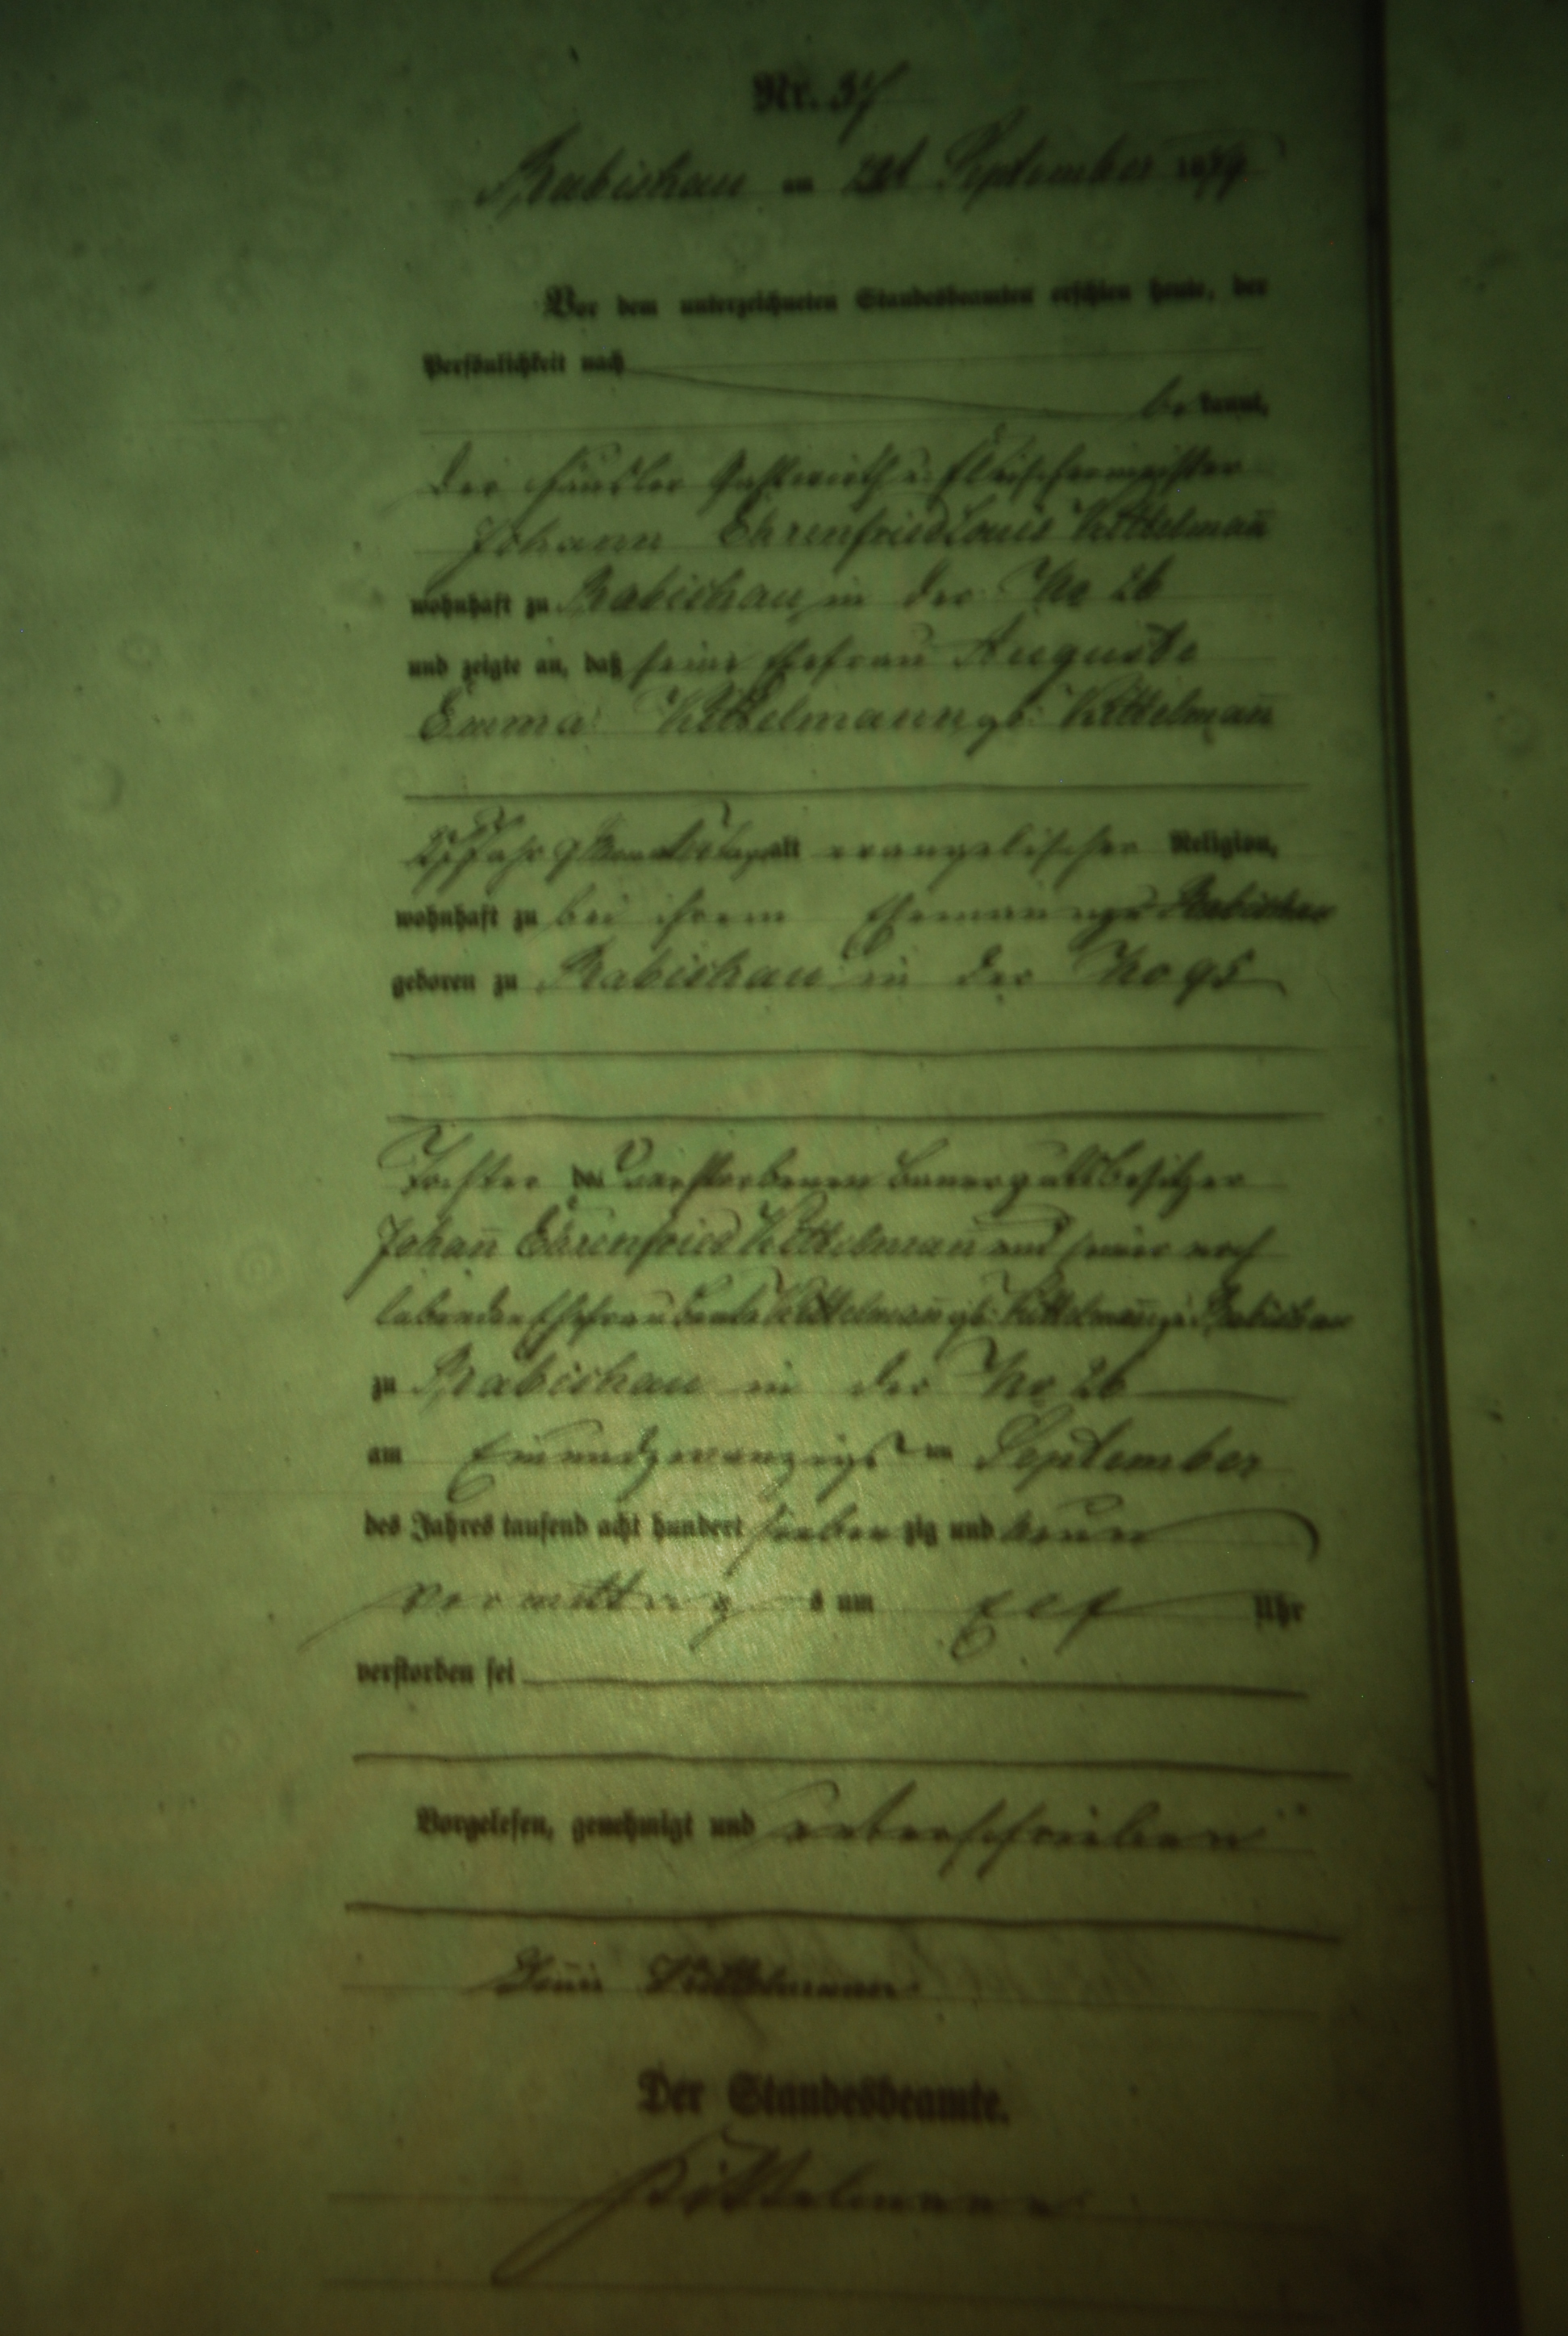 Nr. 37
Rabishau am 21t September 1879
Vor dem unterzeichneten Standesbeamten erschien heute, der
Persönlichkeit nach
be kannt,
der Häusler Gastwirth u. Fleischermeister
Johann Ehrenfried Louis Kittelmañ
wohnhaft zu Rabishau in der No 26
und zeigte an, daß seine Ehefrau Auguste
Emma Kittelmann gb: Kittelmañ
Jahr 9 Monat alt evangelischer Religion,
wohnhaft zu bei ihrem Ehemanne Rabishau
geboren zu Rabishau in der No 95
Tochter des verstorbenen Bauergutsbesitzer
Johañ Ehrenfried Kittelmann und seiner noch
lebenden Ehefrau Kittelmañ gb: Kittelmañ Rabishau
zu Rabishau in der No 26
am Einundzwanzigst en September
des Jahres tausend acht hundert sieben zig und neun
Vormittag s um Elf Uhr
verstorben sei
Vorgelesen, genehmigt und unterschrieben
Louis Kittelmann
Der Standesbeamte.
Kittelmann